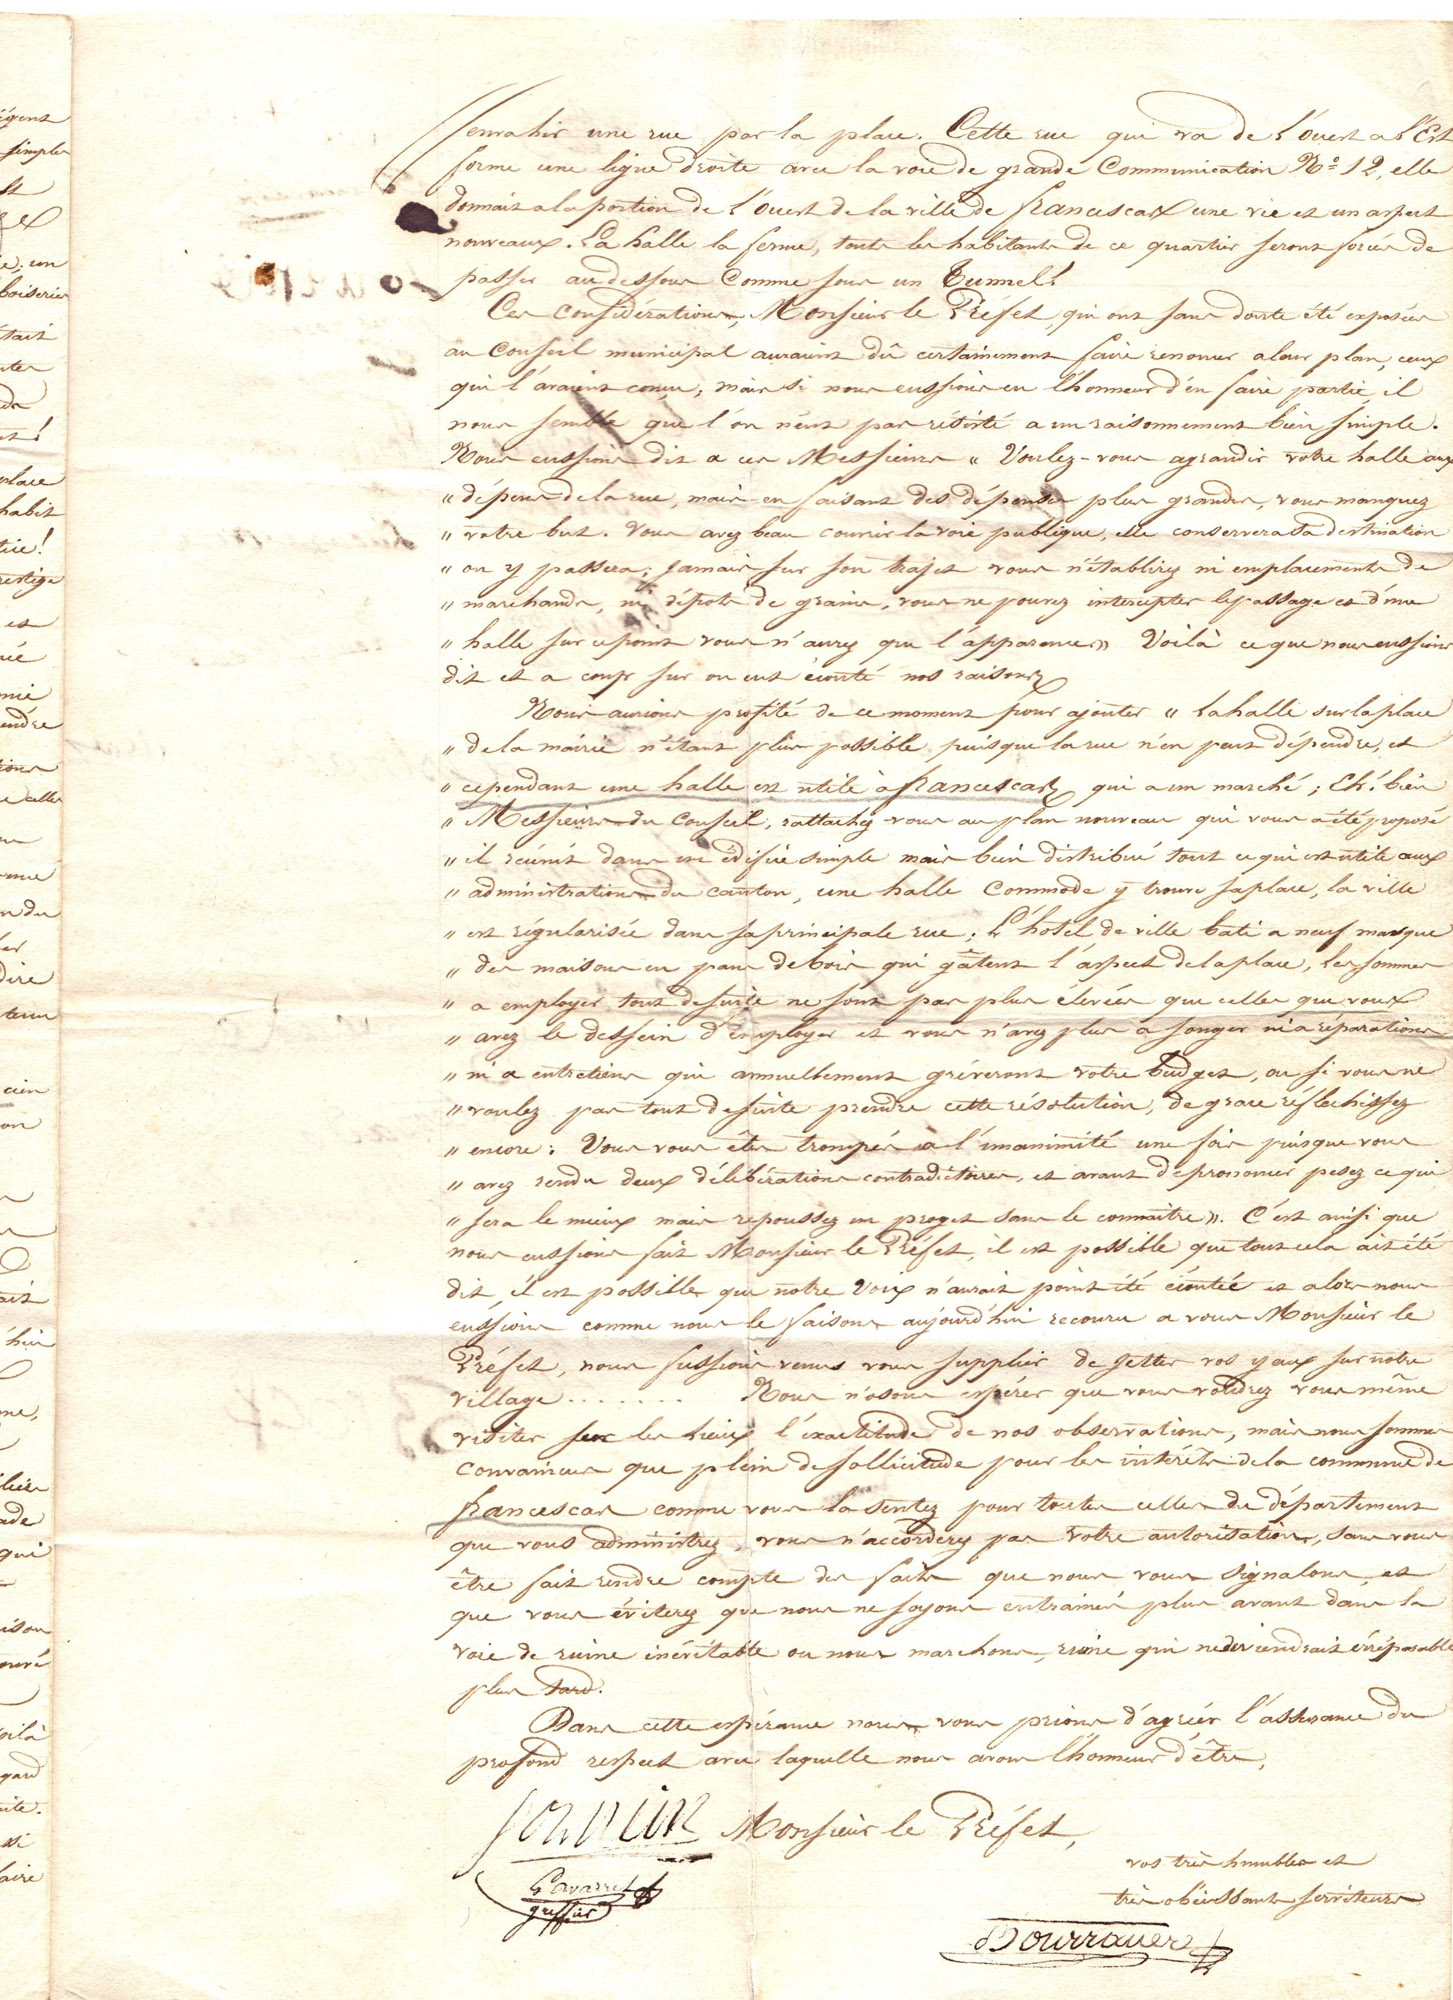 envahir une rue par la place. Cette rue qui va de l'Ouest a l'Est
forme une ligne droite avec la voie de grande Communication N.º 12, elle
donnait a la portion de l'Ouest de la ville de francescas une vie et un aspect
nouveaux. La halle la ferme, touts les habitants de ce quartier seront forcés de
passer au dessous Comme sous un Tunnel!
Ces Considérations, Monsieur le Préfet, qui ont sans doute été exposées
au Conseil municipal auraient dû certainement faire renoncer a leur plan, ceux
qui l'avaient conçu, mais si nous eussions eu l'honneur d'en faire partie, il
nous semble que l'on n'eut pas résisté a un raisonnement bien simple.
Nous eussions dit a ces Messieurs « Voulez-vous agrandir votre halle aux
" dépens de la rue, mais en faisant des dépenses plus grandes, vous manquez
" votre but. Vous avez beau couvrir la voie publique, elle conservera sa destination
" on y passera, jamais sur son trajet vous n'établirez ni emplacements de
" marchands, ni dépots de grains, vous ne pouvez intercepter le passage et d'une
" halle sur ce point vous n'aurez que l'apparence» Voilà ce que nous eussions
dit et a coup sur on eut écouté nos raisons
Nous aurions profité de ce moment pour ajouter « La halle sur la place
" de la mairie n'étant plus possible puisque la rue n'en peut dépendre, et
" cependant une halle est utile à francescas qui a un marché; Eh! bien
" Messieurs du Conseil, rattachez-vous au plan nouveau qui vous a été proposé
" il réunit dans un édifice simple mais bien distribué tout ce qui est utile aux
" administrations du canton, une halle Commode y trouve sa place, la ville
" est régularisée dans sa principale rue; L'hotel de ville bati a neuf masque
" des maisons en pans de bois qui gâtent l'aspect de la place, les sommes
" a employer tout de suite ne sont pas plus élevées que celles que vous
" avez le dessein d'employer et vous n'avez plus a songer ni a réparations
" ni a entretiens qui annuellement gréveront votre budget, ou si vous ne
" voulez pas tout de suite prendre cette résolution, de grace réfléchissez
" encore: Vous vous êtes trompés à l'unanimité une fois puisque vous
" avez rendu deux délibérations contradictoires, et avant de prononcer pesez ce qui
" sera le mieux mais repoussez un projet sans le connaitre». C'est ainsi que
nous eussions fait Monsieur le Préfet, il est possible que tout cela ait été
dit, il est possible que notre voix n'aurait point été écoutée et alors nous
eussions comme nous le faisons aujourd'hui recouru a vous Monsieur le
Préfet, nous fussions venus vous supplier de jetter vos yeux sur notre
village ....... Nous n'osons espérer que vous voudrez vous même
visiter sur les lieux l'exactitude de nos observations, mais nous sommes
convaincus que plein de sollicitude pour les intérêts de la commune de
francescas comme vous la sentez pour toutes celles du département
que vous administrez, vous n'accorderez pas votre autorisation, sans vous
être fait rendre compte des faits que nous vous signalons, et
que vous éviterez que nous ne soyons entrainés plus avant dans la
voie de ruine inévitable ou nous marchons, ruine qui deviendrait irréparable
plus tard.
Dans cette espérance nous vous prions d'agréer l'assurance du
profond respect avec laquelle nous avons l'honneur d'être,
Monsieur le Préfet,
vos très humbles et
très obéissants serviteurs
greffier
Bourrauer